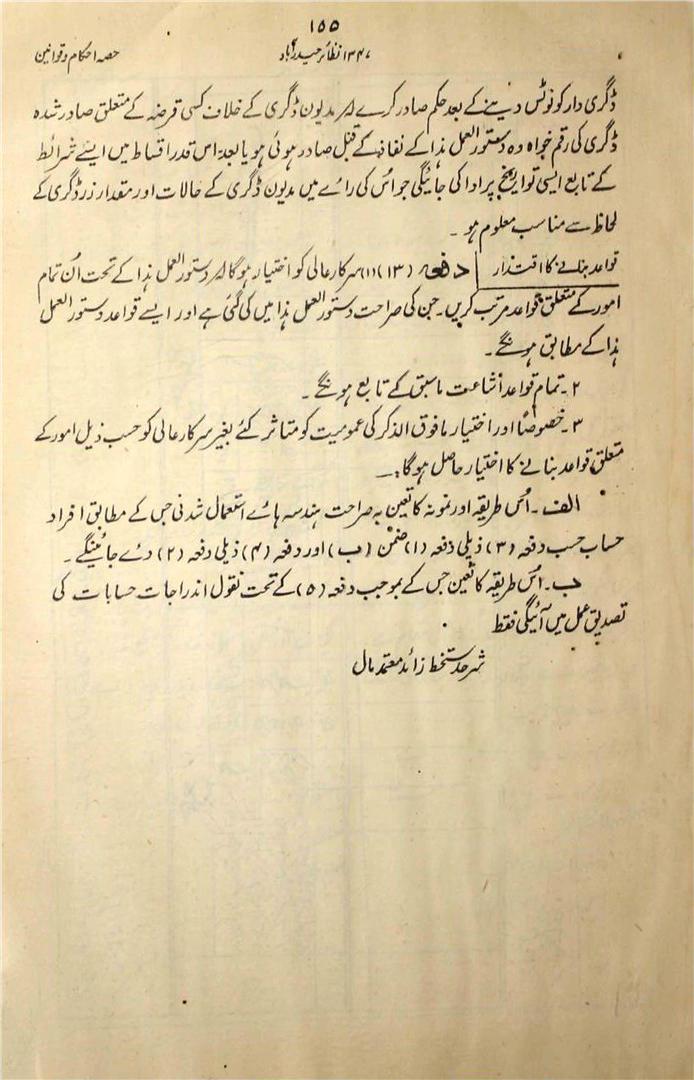 ۱۵۵
۱۳۴۷ نظائر حیدرآباد
حصہ احکام و قوانین
ڈگری دار کو نوٹس دینے کے بعد حکم صادر کرے کہ مدیون ڈگری کے خلاف کسی قرضہ کے متعلق صادر شدہ
ڈگری کی رقم خواہ وہ دستور العمل ہذا کے نفاذ کے قبل صادر ہوئی ہو یا بعد اس قدر اقساط میں ایسے شرائط
کے تابع ایسی تواریخ پر ادا کی جائیگی جو اُس کی رائے میں مدیون ڈگری کے حالات اور مقدار زر ڈگری کے
لحاظ سے مناسب معلوم ہو ۔
قواعد بنانے کا اقتدار | دفعہ (۱۳) (۱) سرکار عالی کو اختیار ہوگا کہ دستور العمل ہذا کے تحت اُن تمام
امور کے متعلق قواعد مرتب کریں ۔ جن کی صراحت دستور العمل ہذا میں کی گئی ہے اور ایسے قواعد دستور العمل
ہذا کے مطابق ہونگے ۔
۲ ۔ تمام قواعد اشاعت ماسبق کے تابع ہونگے ۔
۳ ۔ خصوصاً اور اختیار مافوق الذکر کی عمومیت کو متاثر کئے بغیر سرکار عالی کو حسب ذیل امور کے
متعلق قواعد بنانے کا اختیار حاصل ہوگا :۔
الف ۔ اُس طریقہ اور نمونہ کا تعین بہ صراحت ہندسہ ہائے استعمال شدنی جس کے مطابق افراد
حساب حسب دفعہ (۳) ذیلی دفعہ (۱) ضمن (ب) اور دفعہ (۴) ذیلی دفعہ (۲) دئے جائینگے ۔
ب ۔ اُس طریقہ کا تعین جس کے بموجب دفعہ (۵) کے تحت نقول اندراجات حسابات کی
تصدیق عمل میں آئیگی فقط
شرحدستخط زائد معتمد مال